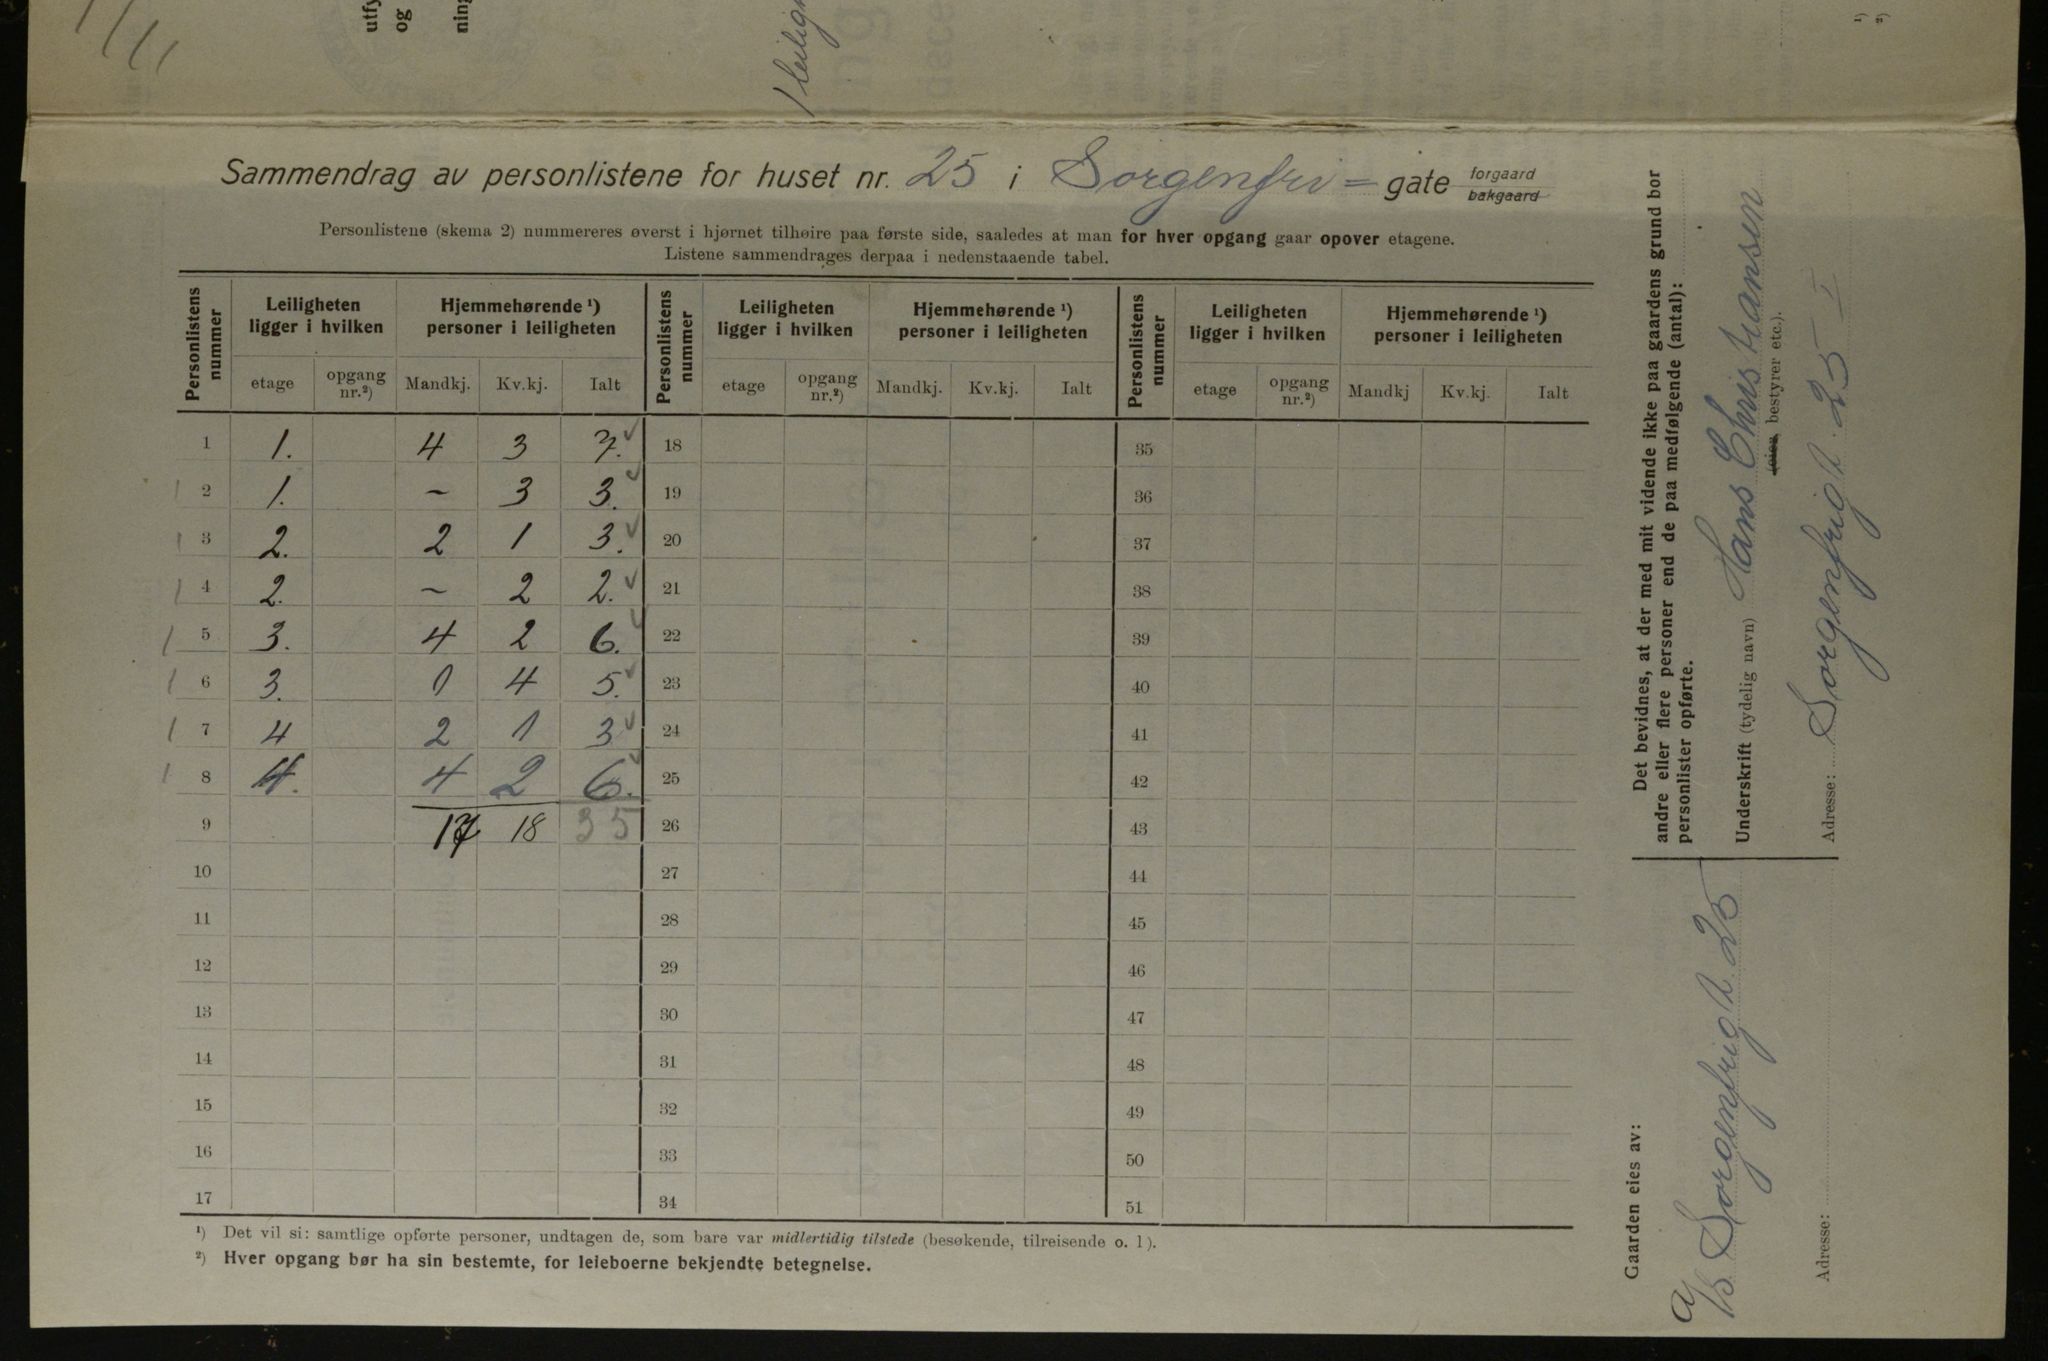 utfy
og
ning
1 leilig
¹)
²)
Sammendrag av personlistene for huset nr. 25 i Sorgenfri= gate forgaard bakgaard
Personlistene (skema 2) nummereres øverst i hjørnet tilhøire paa første side, saaledes at man for hver opgang gaar opover etagene.
Listene sammendrages derpaa i nedenstaaende tabel.
Personlistens nummer | Leiligheten ligger i hvilken | Hjemmehørende ¹) personer i leiligheten | Personlistens nummer | Leiligheten ligger i hvilken | Hjemmehørende ¹) personer i leiligheten | Personlistens nummer | Leiligheten ligger i hvilken | Hjemmehørende ¹) personer i leiligheten
etage | opgang nr.²) | Mandkj. | Kv.kj. | Ialt | etage | opgang nr.²) | Mandkj. | Kv.kj. | Ialt | etage | opgang nr.²) | Mandkj | Kv.kj. | Ialt
1 1. 4 3 7. 18 35
1 2 1. – 3 3. 19 36
1 3 2. 2 1 3. 20 37
1 4 2. – 2 2. 21 38
1 5 3. 4 2 6. 22 39
1 6 3. 1 4 5. 23 40
1 7 4 2 1 3 24 41
1 8 4. 4 2 6. 25 42
9 17 18 35 26 43
10 27 44
11 28 45
12 29 46
13 30 47
14 31 48
15 32 49
16 33 50
17 34 51
¹) Det vil si: samtlige opførte personer, undtagen de, som bare var midlertidig tilstede (besøkende, tilreisende o. l).
²) Hver opgang bør ha sin bestemte, for leieboerne bekjendte betegnelse.
Det bevidnes, at der med mit vidende ikke paa gaardens grund bor
andre eller flere personer end de paa medfølgende (antal):
personlister opførte.
Underskrift (tydelig navn) Hans Christiansen
(eier, bestyrer etc.).
Adresse: Sorgenfrigt. 25 I
Gaarden eies av:
A/S Sorgenfrigt. 25
Adresse: